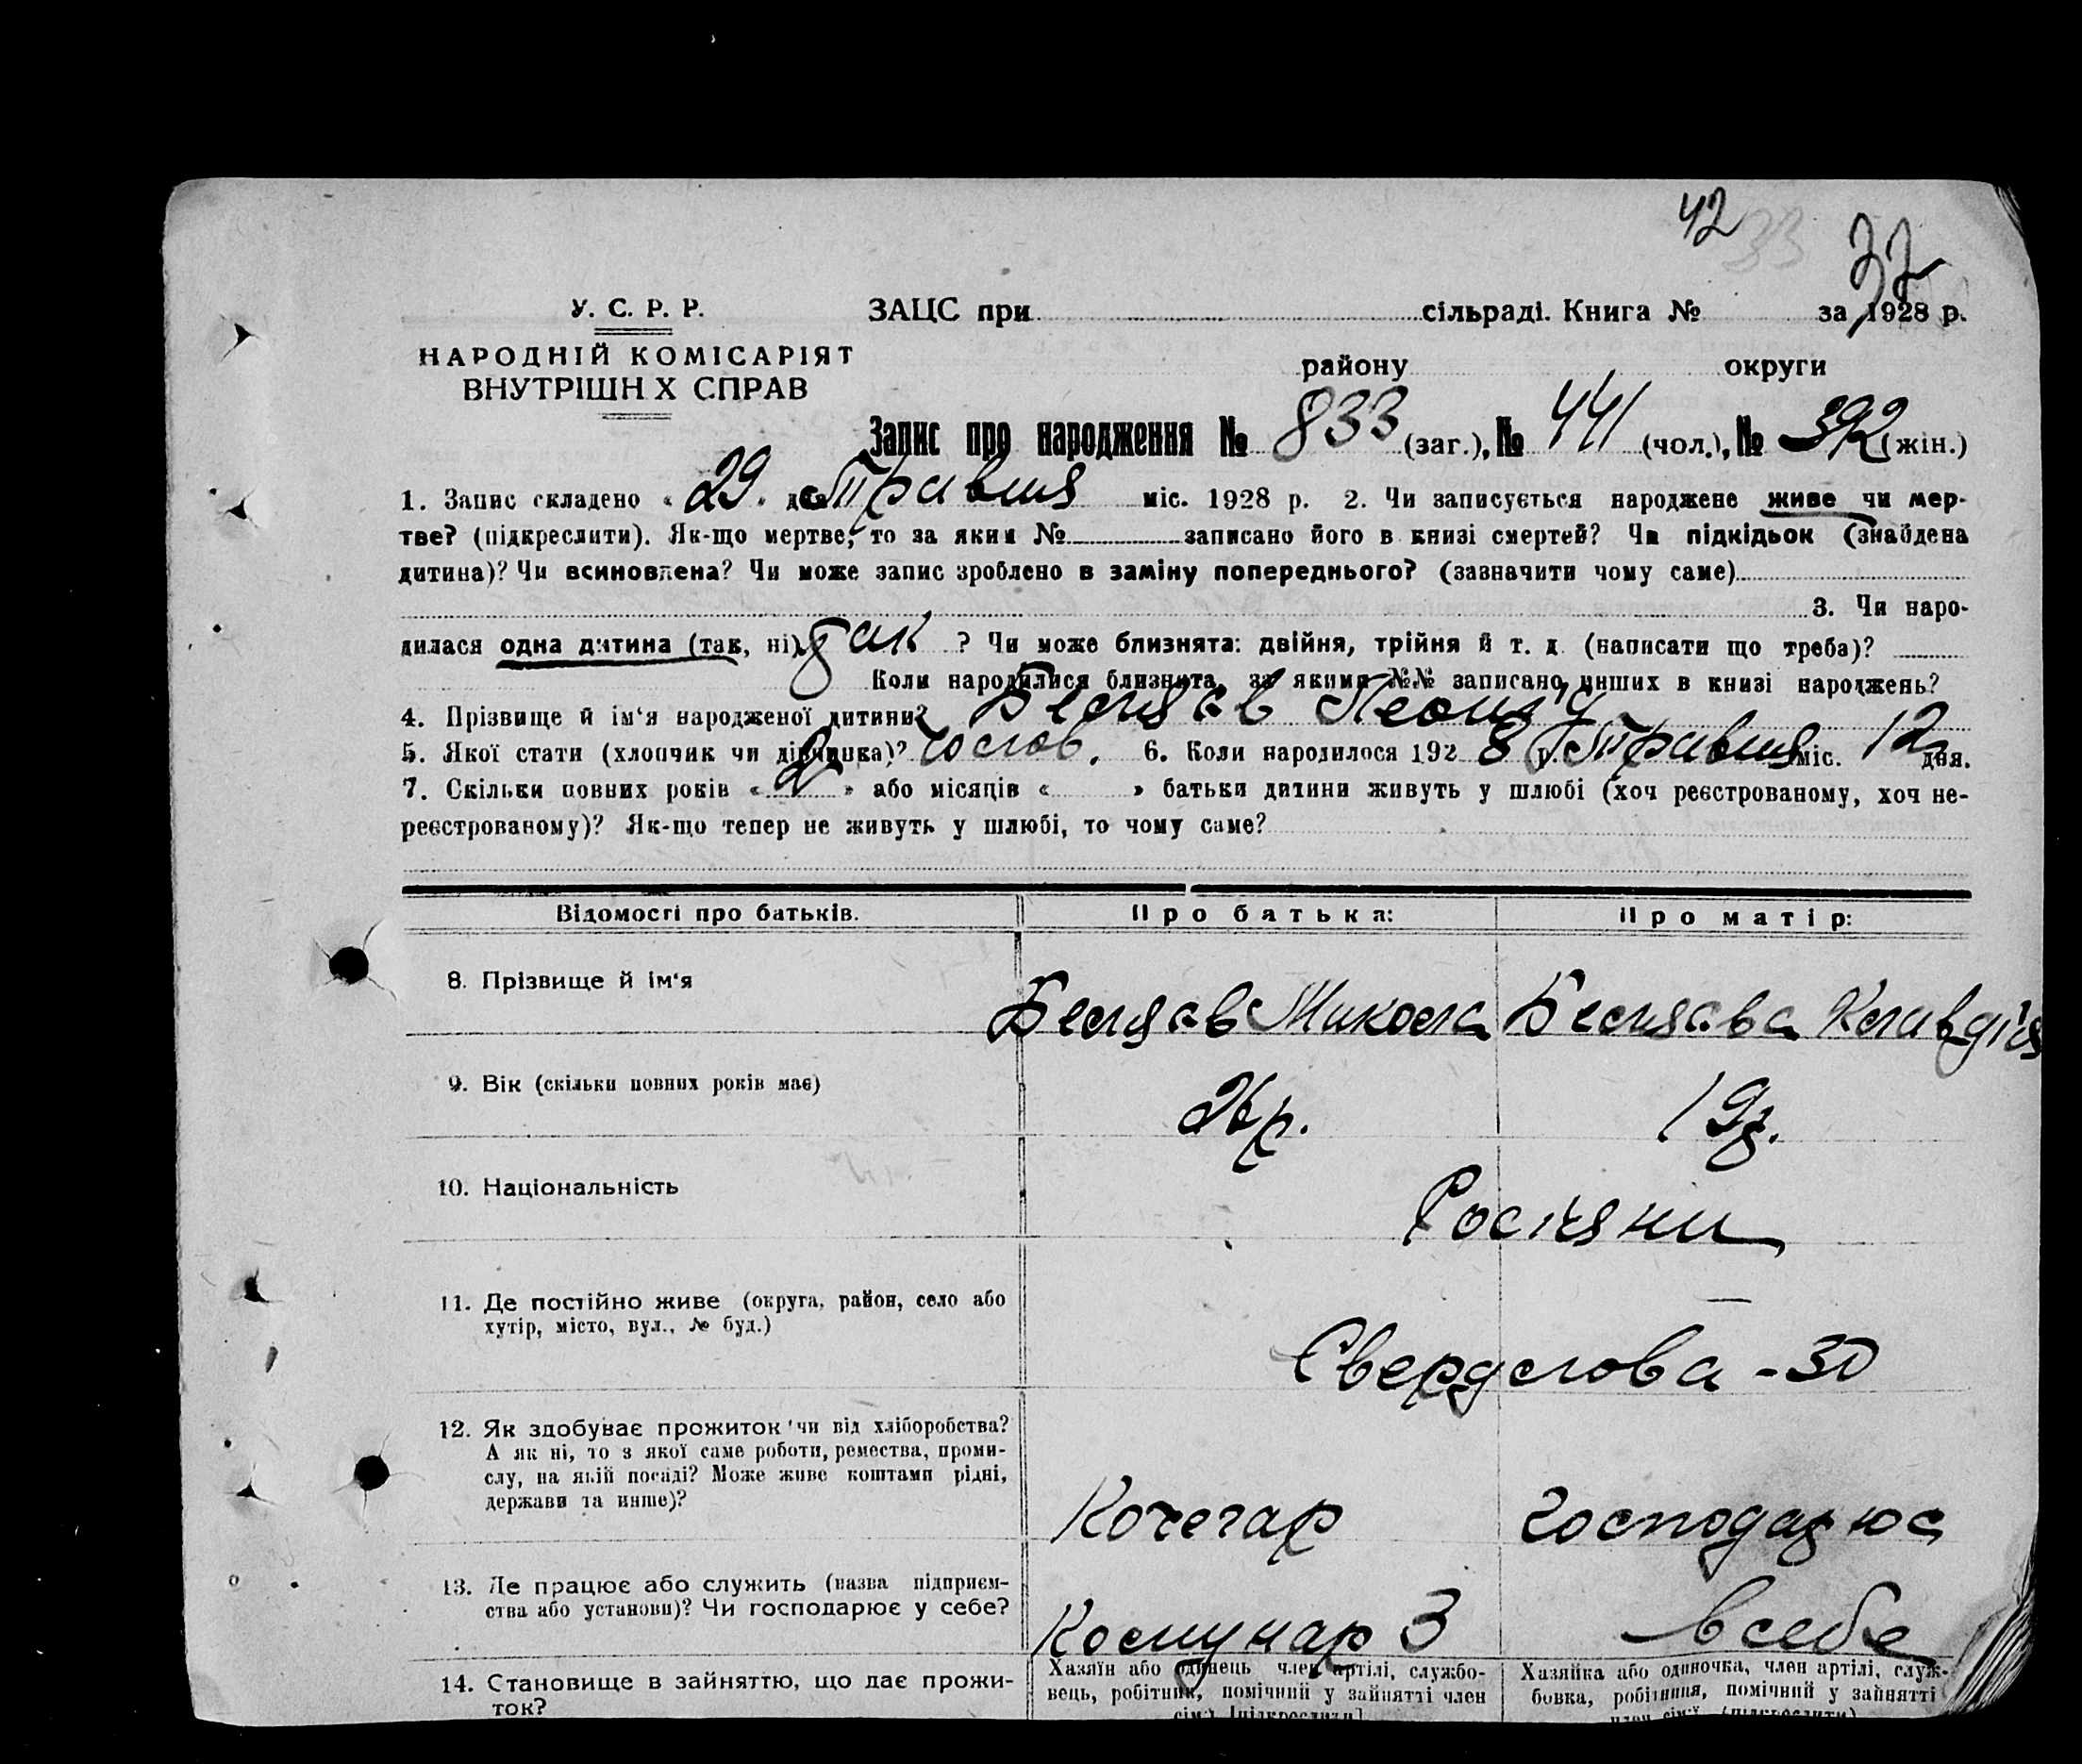 42 33
37
У. С. Р. Р.
НАРОДНІЙ КОМІСАРІЯТ
ВНУТРІШН Х СПРАВ
ЗАЦС при сільраді. Книга № за 1928 р.
району округи
Запис про народження № 833 (заг.), № 441 (чол.), № 392 (жін.)
1. Запис складено « 29 » дня Травня міс. 1928 р. 2. Чи записується народжене живе чи мер-
тве? (підкреслити). Як-що мертве, то за яким № записано його в книзі смертей? Чи підкідьок (знайдена
дитина)? Чи всиновлена? Чи може запис зроблено в заміну попереднього? (зазначити чому саме)
3. Чи наро-
дилася одна дитина (так, ні) так ? Чи може близнята: двійня, трійня й т. д. (написати що треба)?
Коли народилися близнята, за якими №№ записано инших в книзі народжень?
4. Прізвище й ім'я народженої дитини?
5. Якої стати (хлопчик чи дівчинка)? 6. Коли народилося 192 8 р. Травня міс. 12 дня.
7. Скільки повних років « 2 » або місяців « » батьки дитини живуть у шлюбі (хоч реєстрованому, хоч не-
реєстрованому)? Як-що тепер не живуть у шлюбі, то чому саме?
Відомості про батьків. Про батька: Про матір:
8. Прізвище й ім'я Микола Клавдія
9. Вік (скільки повних років має) 26 р. 19 р.
10. Національність Росіяни
11. Де постійно живе (округа, район, село або
хутір, місто, вул., № буд.)
Свердлова - 30
12. Як здобуває прожиток чи від хліборобства?
А як ні, то з якої саме роботи, ремества, проми-
слу, на якій посаді? Може живе коштами рідні,
держави та инше)?
Кочегар Господарює
13. Де працює або служить (назва підприєм-
ства або установи)? Чи господарює у себе?
Комунар 3 в себе
14. Становище в зайняттю, що дає прожи-
ток?
Хазяїн або одинець член артілі, службо-
вець, робітник, помічний у зайнятті член
сім'ї [підкреслити]
Хазяйка або одиночка, член артілі, служ-
бовка, робітниця, помічний у зайнятті
член сім'ї, (підкреслити)